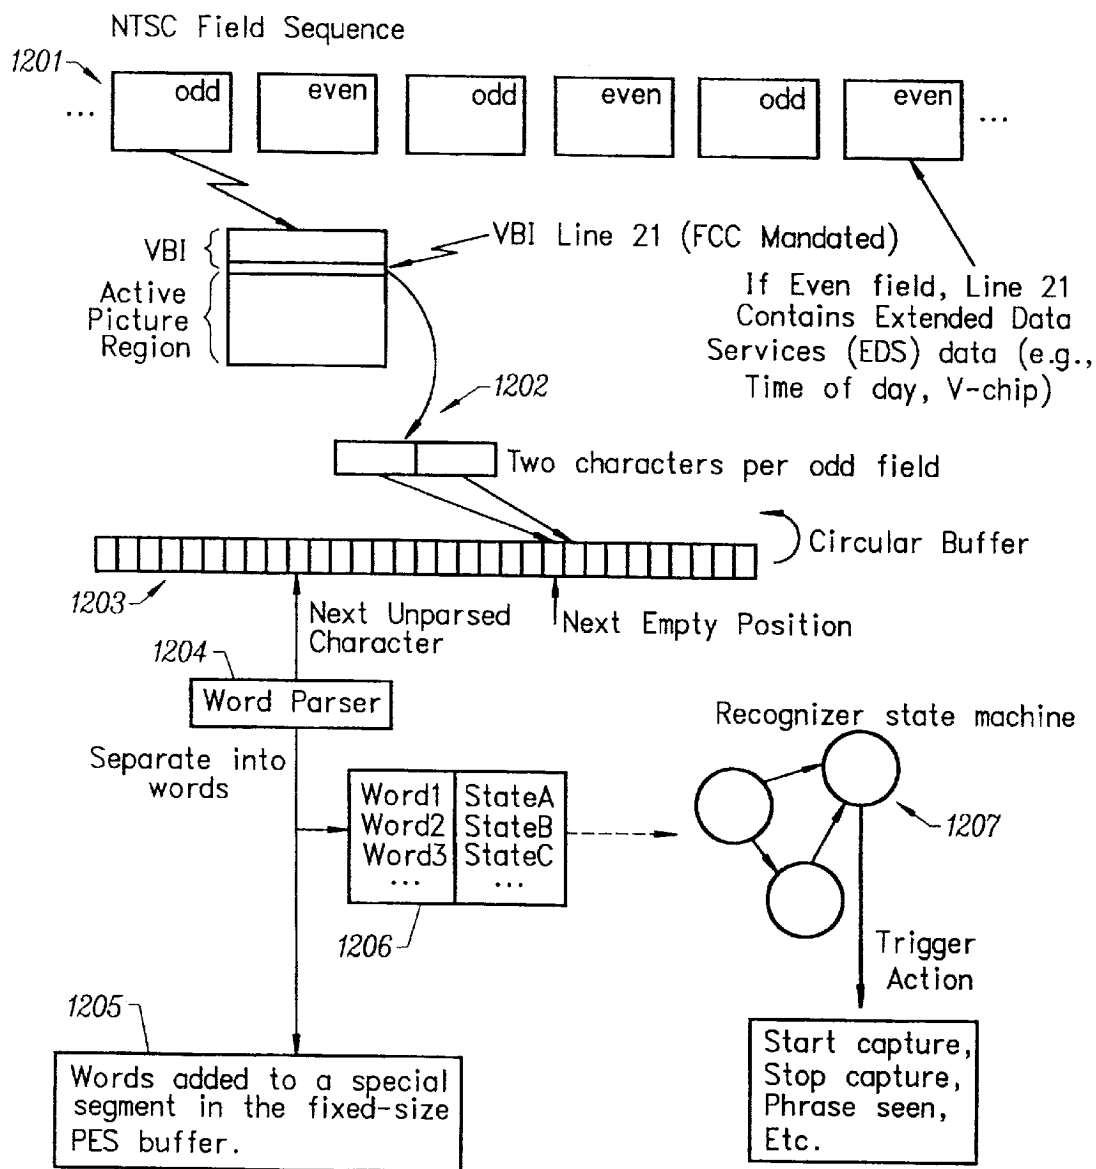 NTSC Field Sequence
1201
... odd even odd even odd even ...
VBI
VBI Line 21 (FCC Mandated)
Active
Picture
Region
If Even field, Line 21
Contains Extended Data
Services (EDS) data (e.g.,
Time of day, V-chip)
1202
Two characters per odd field
Circular Buffer
1203
Next Unparsed
Character
Next Empty Position
1204
Word Parser
Separate into
words
Word1 StateA
Word2 StateB
Word3 StateC
... ...
1206
Recognizer state machine
1207
Trigger
Action
1205
Words added to a special
segment in the fixed-size
PES buffer.
Start capture,
Stop capture,
Phrase seen,
Etc.